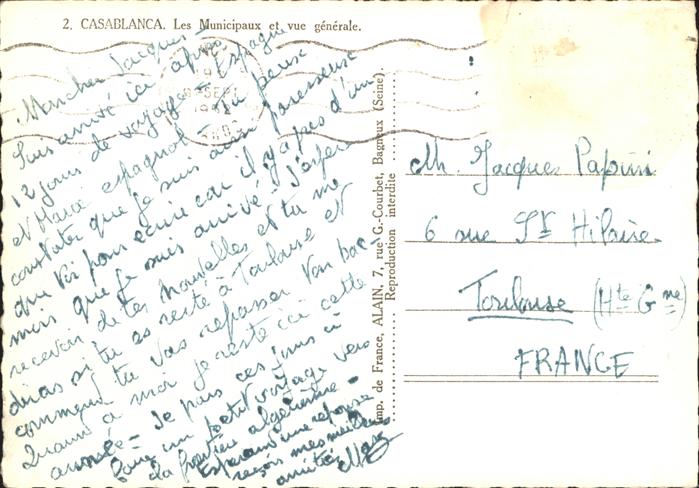 2. CASABLANCA. Les Municipaux et vue générale.
Mon cher Jacques -
Suis arrivé ici après
12 jours de voyage - Espagne
et Maroc espagnol - Tu peux
constater que je suis aussi paresseuse
que toi pour écrire car il y a près d'un
mois que je suis arrivé. J'espère
recevoir de tes nouvelles et tu me
diras si tu es resté à Toulouse et
comment tu vas repasser ton bac -
Quant à moi je reste ici cette
année - Je pars ces jours à
faire un petit voyage vers
la frontière algérienne -
Espérant une réponse
reçois mes meilleures
amitiés
Imp. de France, ALAIN, 7, rue G.-Courbet, Bagneux (Seine).
Reproduction interdite
M. Jacques Papini
6 rue St Hilaire
Toulouse (Hte Gne)
FRANCE